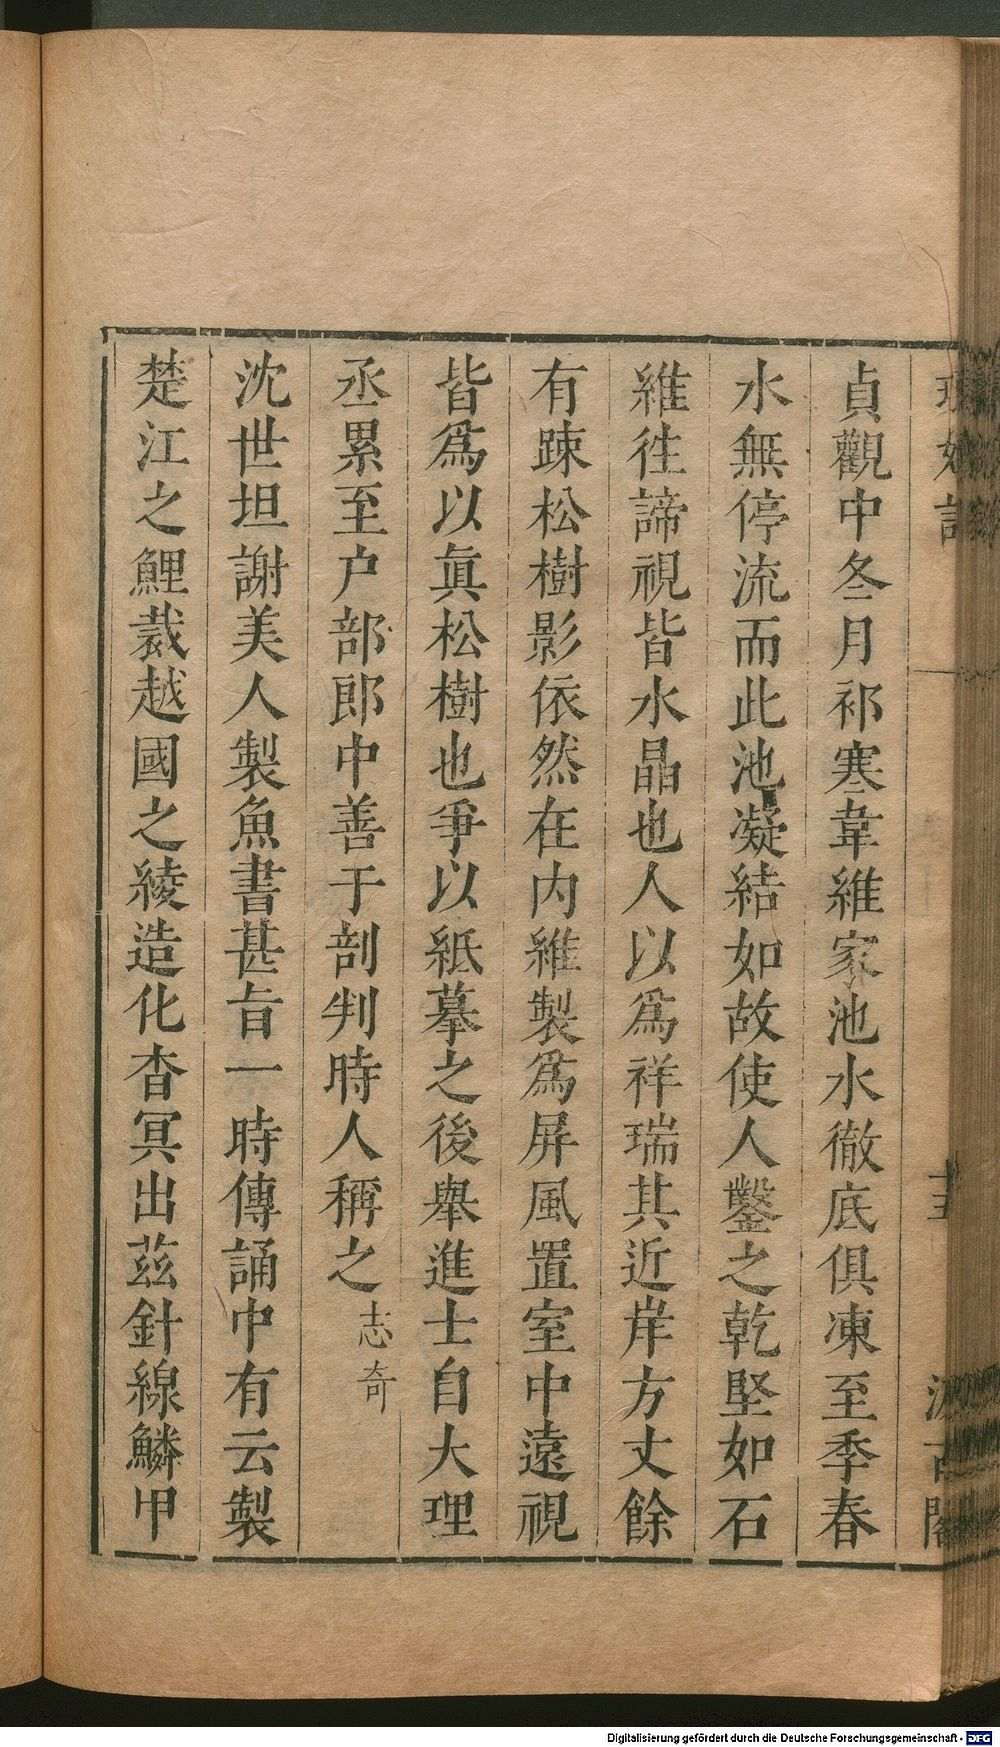 貞觀中冬月祁寒韋維家池水徹底俱凍至季春
水無停流而此池凝結如故使人鑿之乾堅如石
維徃諦視皆水晶也人以爲祥瑞其近岸方丈餘
有踈松樹影依然在内維製爲屏風置室中遠視
皆爲以眞松樹也爭以紙摹之後舉進士自大理
丞累至户部郎中善于剖判時人稱之志奇
沈世坦謝美人製魚書甚旨一時傳誦中有云製
楚江之鯉裁越國之綾造化杳冥出茲針線鱗甲
Digitalisierung gefördert durch die Deutsche Forschungsgemeinschaft - DFG